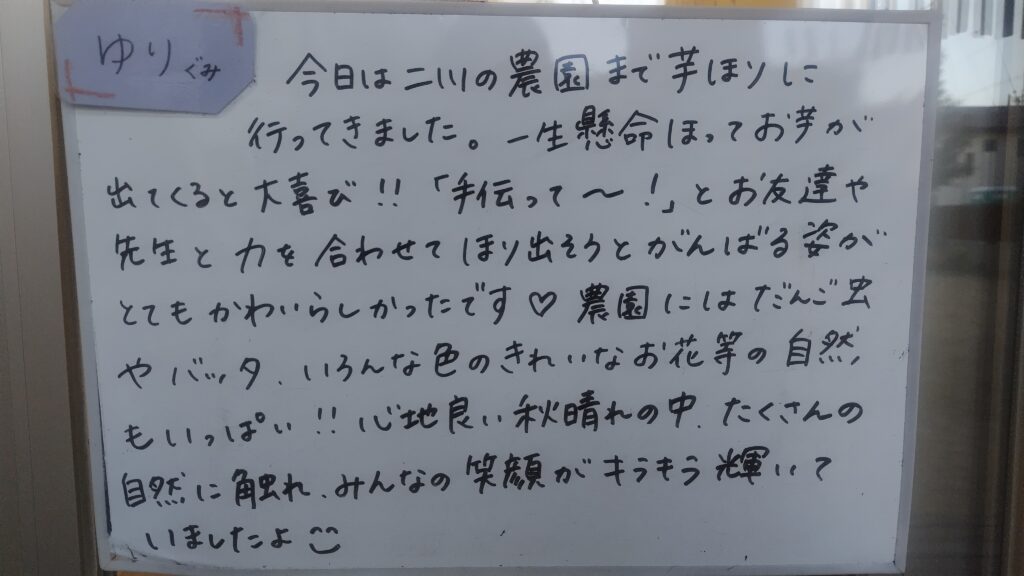 ゆりぐみ
今日は二川の農園まで芋ほりに
行ってきました。一生懸命ほってお芋が
出てくると大喜び!!「手伝って～!」とお友達や
先生と力を合わせてほり出そうとがんばる姿が
とてもかわいらしかったです♡ 農園にはだんご虫
やバッタ、いろんな色のきれいなお花等の自然
もいっぱい!! 心地良い秋晴れの中、たくさんの
自然に触れ、みんなの笑顔がキラキラ輝いて
いましたよ